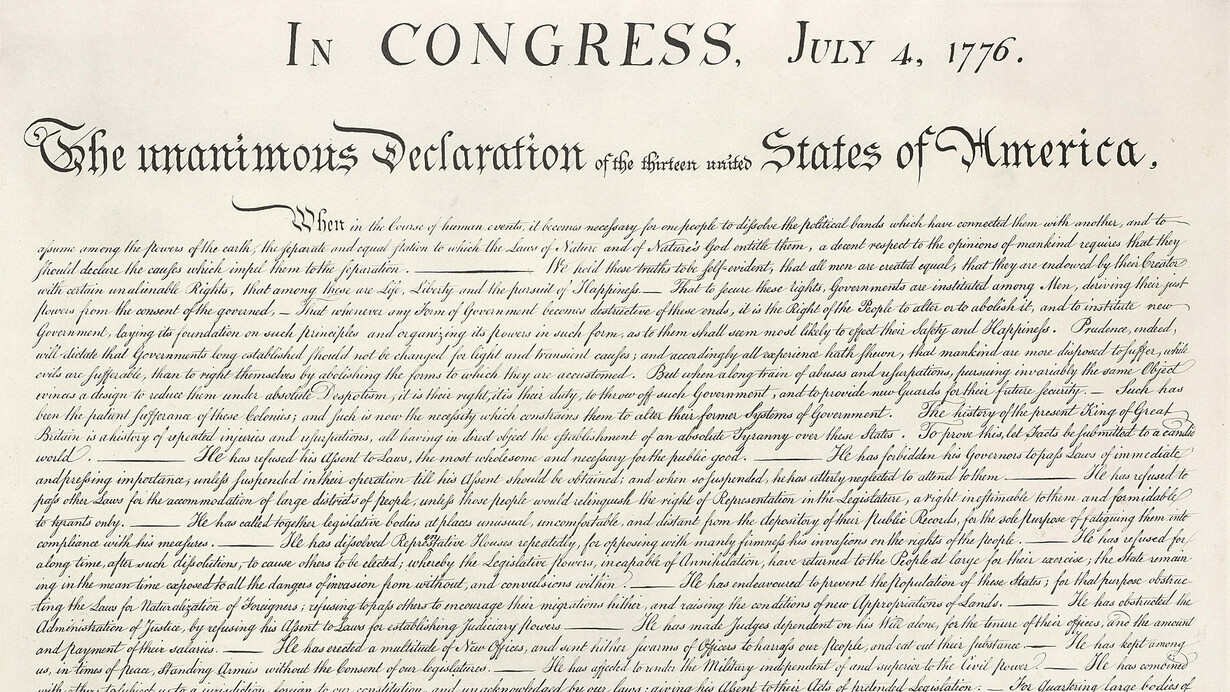 In CONGRESS, July 4, 1776.
The unanimous Declaration of the thirteen united States of America,
When in the Course of human events, it becomes necessary for one people to dissolve the political bands which have connected them with another, and to
assume among the powers of the earth, the separate and equal station to which the Laws of Nature and of Nature's God entitle them, a decent respect to the opinions of mankind requires that they
should declare the causes which impel them to the separation. ——— We hold these truths to be self-evident, that all men are created equal, that they are endowed by their Creator
with certain unalienable Rights, that among these are Life, Liberty and the pursuit of Happiness — That to secure these rights, Governments are instituted among Men, deriving their just
powers from the consent of the governed, — That whenever any Form of Government becomes destructive of these ends, it is the Right of the People to alter or to abolish it, and to institute new
Government, laying its foundation on such principles and organizing its powers in such form, as to them shall seem most likely to effect their Safety and Happiness. Prudence, indeed,
will dictate that Governments long established should not be changed for light and transient causes; and accordingly all experience hath shewn, that mankind are more disposed to suffer, while
evils are sufferable, than to right themselves by abolishing the forms to which they are accustomed. But when a long train of abuses and usurpations, pursuing invariably the same Object
evinces a design to reduce them under absolute Despotism, it is their right, it is their duty, to throw off such Government, and to provide new Guards for their future security. — Such has
been the patient sufferance of these Colonies; and such is now the necessity which constrains them to alter their former Systems of Government. The history of the present King of Great
Britain is a history of repeated injuries and usurpations, all having in direct object the establishment of an absolute Tyranny over these States. To prove this, let Facts be submitted to a candid
world. ——— He has refused his Assent to Laws, the most wholesome and necessary for the public good. ——— He has forbidden his Governors to pass Laws of immediate
and pressing importance, unless suspended in their operation till his Assent should be obtained; and when so suspended, he has utterly neglected to attend to them. ——— He has refused to
pass other Laws for the accommodation of large districts of people, unless those people would relinquish the right of Representation in the Legislature, a right inestimable to them and formidable
to tyrants only. ——— He has called together legislative bodies at places unusual, uncomfortable, and distant from the depository of their public Records, for the sole purpose of fatiguing them into
compliance with his measures. ——— He has dissolved Representative Houses repeatedly, for opposing with manly firmness his invasions on the rights of the people. ——— He has refused for
a long time, after such dissolutions, to cause others to be elected; whereby the Legislative powers, incapable of Annihilation, have returned to the People at large for their exercise; the State remain-
ing in the mean time exposed to all the dangers of invasion from without, and convulsions within. ——— He has endeavoured to prevent the population of these States; for that purpose obstruc-
ting the Laws for Naturalization of Foreigners; refusing to pass others to encourage their migrations hither, and raising the conditions of new Appropriations of Lands. ——— He has obstructed the
Administration of Justice, by refusing his Assent to Laws for establishing Judiciary powers. ——— He has made Judges dependent on his Will alone, for the tenure of their offices, and the amount
and payment of their salaries. ——— He has erected a multitude of New Offices, and sent hither swarms of Officers to harrass our people, and eat out their substance. ——— He has kept among
us, in times of peace, Standing Armies without the Consent of our legislatures. ——— He has affected to render the Military independent of and superior to the Civil power. ——— He has combined
with others to subject us to a jurisdiction foreign to our constitution, and unacknowledged by our laws; giving his Assent to their Acts of pretended Legislation: — For Quartering large bodies of